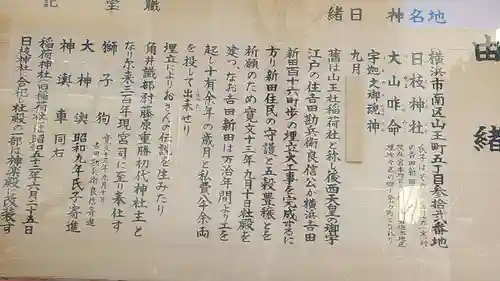 由緒
地名 横浜市南区山王町五丁目参拾弐番地
神 日枝神社
大山咋命
宇迦之御魂神
日 九月
緒 舊は山王社稲荷社と称し後西天皇の御宇
江戸の住吉田勘兵衛良信公が横浜吉田
新田百十六町歩の埋立大工事を完成するに
方り新田住民の守護と五穀豊穣とを
祈願のため寛文十三年九月十日社殿を
建つ、なお吉田新田は万治年間より工を
起し十有余年の歳月と私費八千余両
を投して出来せり
埋立によりおさんの伝説を生みたり
職 角井織部尉藤原重勝初代神社主と
なり尓来三百年現宮司に至り奉仕す
宝 獅子狗 寛文十三年九月
吉田勘兵衛良信寄進
大神輿 昭和九年氏子寄進
神輿車 同右
記 稲荷神社(旧稲荷社)は昭五三年六月二十五日
日枝神社へ合祀、社殿の一部は神楽殿に改装す